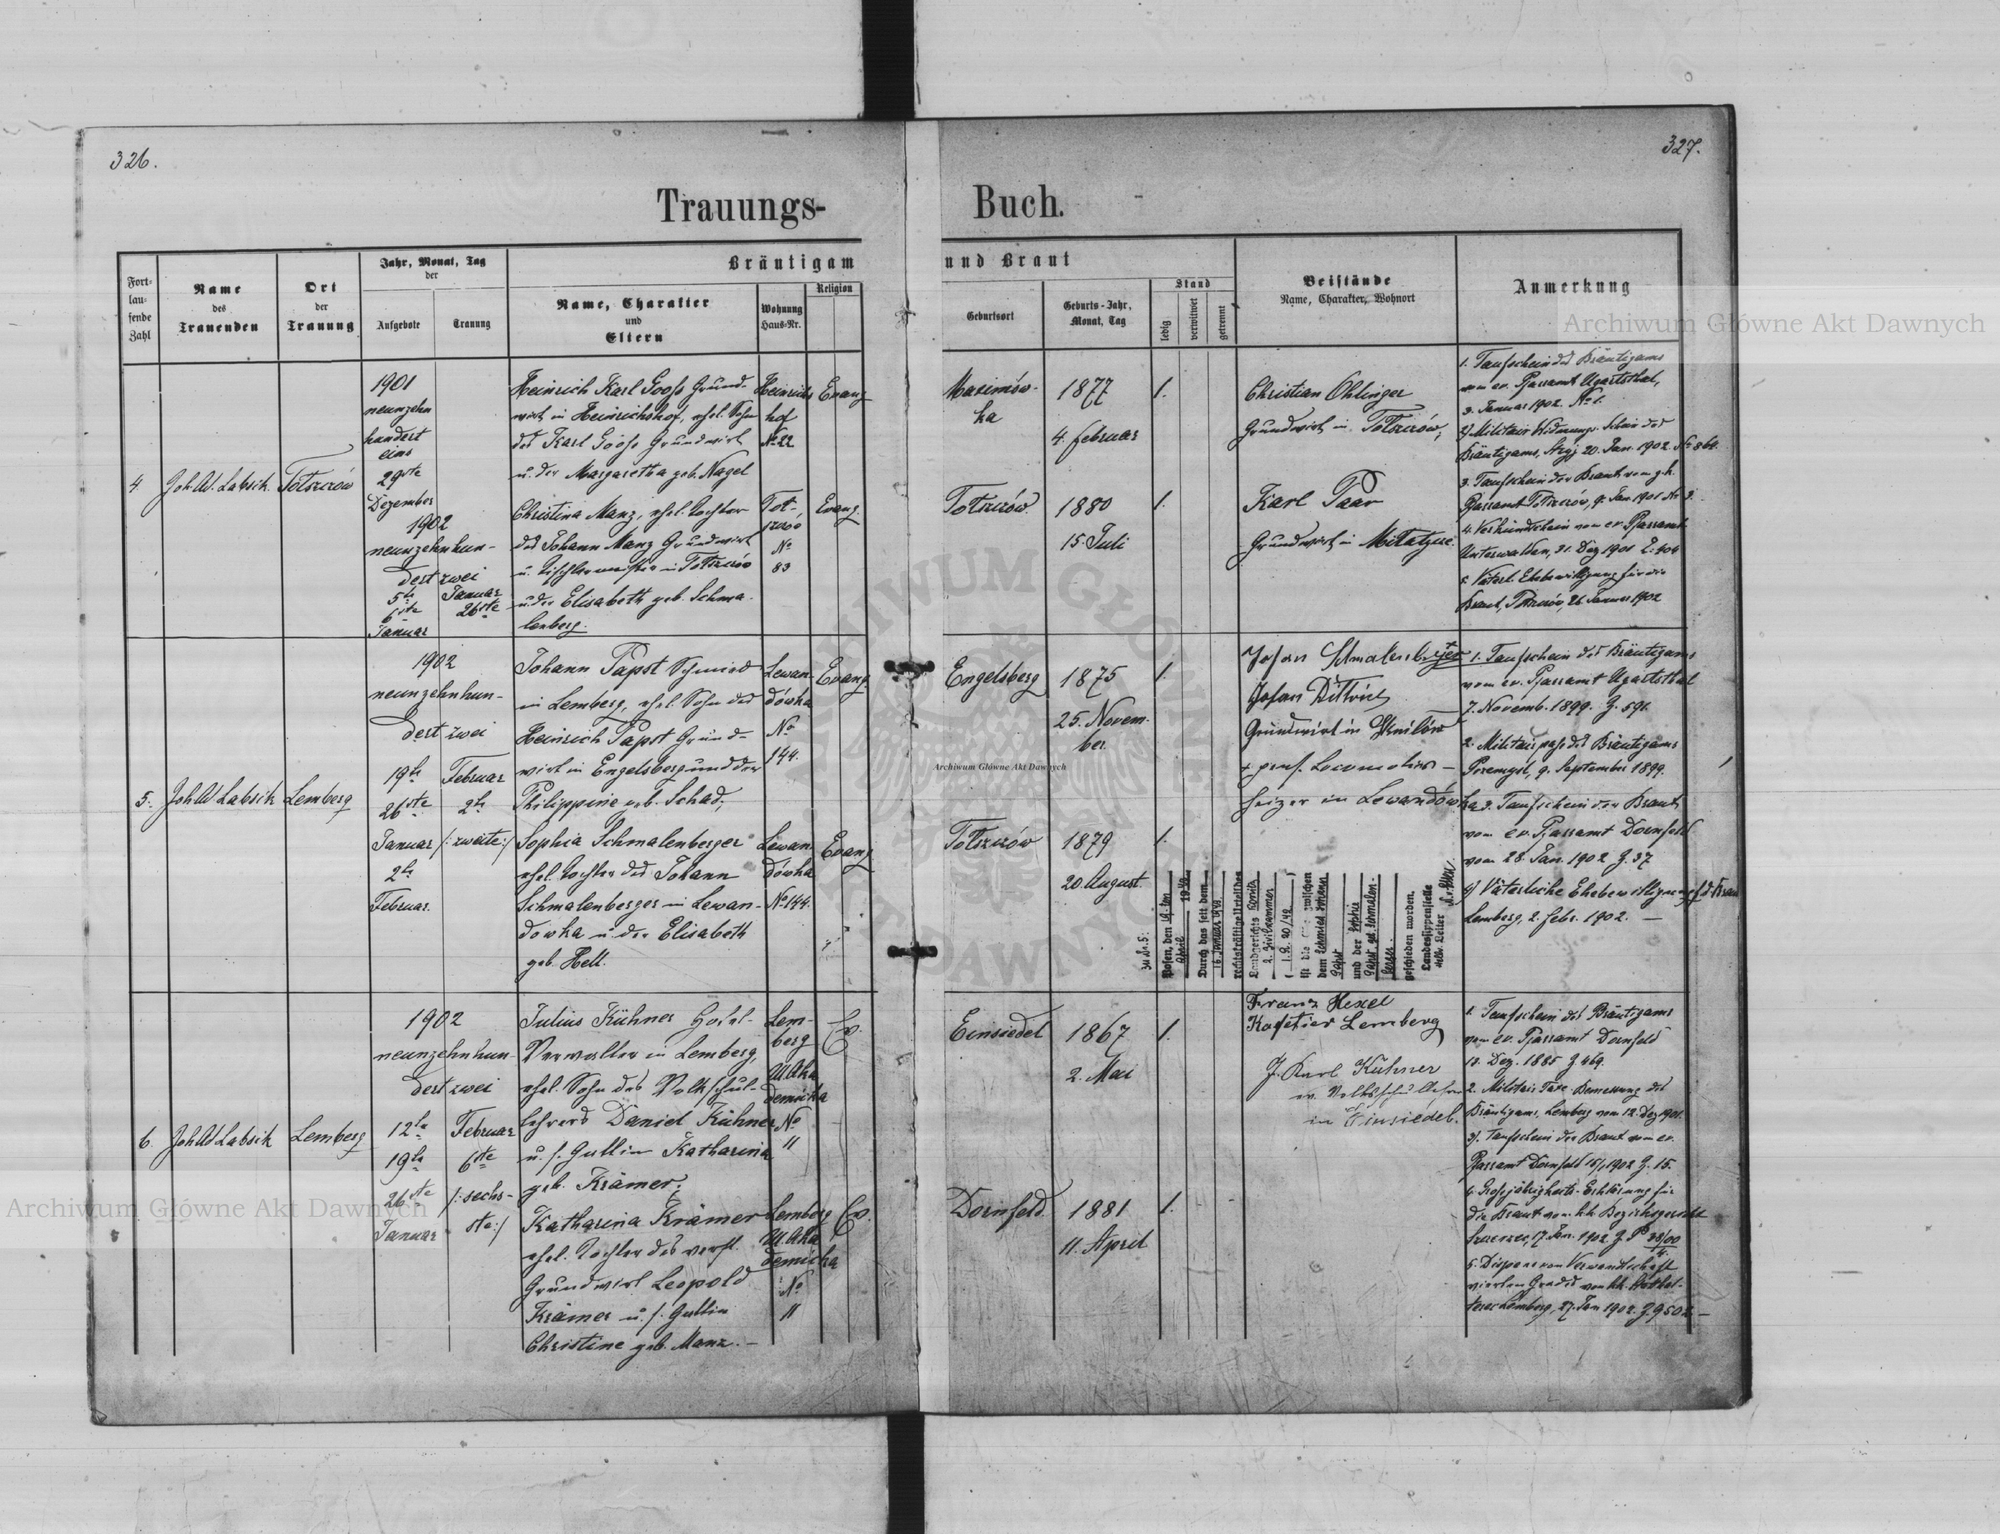 326.
327.
Trauungs-
Buch.
Fort-
lau-
fende
Zahl
Name
des
Trauenden
Ort
der
Trauung
Jahr, Monat, Tag
der
Aufgebote
Trauung
Bräutigam
und Braut
Name, Charakter
und
Eltern
Wohnung
Haus-Nr.
Religion
Geburtsort
Geburts-Jahr,
Monat, Tag
Stand
ledig
verwitwet
getrennt
Beistände
Name, Charakter, Wohnort
Anmerkung
4
Joh. Ad. Labsik
Tołszczów
1901
neunzehn
hundert
eins
29ste
Dezember
1902
neunzehnhun-
dert zwei
5te Januar
6te 26ste
Januar
Heinrich Karl Gooss Grund-
wirt in Heinrichshof, ehel. Sohn
des Karl Gooss Grundwirt
u. der Margaretha geb. Nagel
Heinrichs
hof
No 22
Evang.
Christina Manz, ehel. Tochter
des Johann Manz Grundwirt
u. Tischlermeister in Tołszczów
u. der Elisabeth geb. Schma-
lenberg.
Toł-
No
83
Evang.
Maximów-
ka
1877
4. Februar
1.
Tołszczów
1880
15 Juli
1.
Christian Ohlinger
Grundwirt in Tołszczów,
Karl Paar
Grundwirt in
1. Taufschein des Bräutigams
vom ev. Pfarramt Ugartsthal,
3. Januar 1902. No 1.
Bräutigams, 20. Jan. 1902
3. Taufschein der Braut vom
Pfarramt Tołszczów, Jan. 1901 No 3.
4. Verkündschein vom ev. Pfarramt
Unterwalden, 31. Dez 1901 Z. 404
5. Väterl. Ehebewilligung für die
Braut, Tołszczów, 26. Januar 1902
5.
Joh. Ad Labsik
Lemberg
1902
neunzehnhun-
dert zwei
19te Februar
26ste 2te
Januar /:zweite:/
2te
Februar.
Johann Papst Schmied
in Lemberg, ehel. Sohn des
Heinrich Papst Grund-
wirt in Engelsberg und der
Philippine geb. Schad,
Lewan-
dówka
No
144.
Evang.
Sophia Schmalenberger
ehel. Tochter des Johann
Schmalenberger in Lewan-
dowka u. der Elisabeth
geb. Hell.
Lewan-
dówka
No 144.
Evang
Engelsberg
1875
25. Novem-
ber.
1.
Tołszczów
1879
20. August.
1.
Johan Schmalenberger
Johan Dittrich
Grundwirt in
+ pens. Locomotiv-
heizer in Lewandówka
1. Taufschein des Bräutigams
vom ev. Pfarramt Ugartsthal
7. Novemb. 1899. Z. 591.
2. Militairpass des Bräutigams
Przemysl, 9. September 1899.
3. Taufschein der Braut,
vom ev. Pfarramt Dornfeld
vom 28. Jan. 1902 Z. 37
4) Väterliche Ehebewilligung f. d. Braut
Lemberg, 2. Febr. 1902.
Zu Nr. 5:
Posen, den
April
Durch das seit dem
16. Januar
rechtskräftige Urteil des
Landgerichts
2. Zivilkammer
ist die Ehe zwischen
dem Schmied Johann
Papst
und der Sophie
Papst geb. Schmalen-
berger
geschieden worden.
Landessippenstelle
Leiter
6.
Joh Ad Labsik
Lemberg
1902
neunzehnhun-
dert zwei
12te Februar
19te 6ste
26ste /:sechs-
Januar ste:/
Julius Kühner Hotel-
Verwalter in Lemberg,
ehel. Sohn des Volkschul-
lehrers Daniel Kühner
u. s. Gattin Katharina
geb. Krämer,
Lem-
berg
Ul. Aka
demicka
No
11
Ev.
Katharina Krämer
ehel. Tochter des verst.
Grundwirt Leopold
Krämer u. s. Gattin
Christine geb. Manz.
Lemberg
Ul. Aka
demicka
No
11
Ev.
Einsiedel
1867
2. Mai
1.
Dornfeld
1881
11. April
1.
Franz Hexel
Kafetier Lemberg
J. Karl Kühner
ev. Volksschullehrer
in Einsiedel.
1. Taufschein des Bräutigams
vom ev. Pfarramt Dornfeld
13. Dez. 1885 Z 469.
2. Militair-Taxe-Bemessung des
Bräutigams, Lemberg vom 12. Dez 1901.
3. Taufschein der Braut vom ev.
Pfarramt Dornfeld 1902 Z. 15.
4. Grossjährigkeits-Erklärung für
die Braut vom kk Bezirksgericht
17. Jan. 1902
5. Dispens von Verwandtschaft
vierten Grades von kk.
Lemberg, 27. Jan 1902. Z. 9502
Archiwum Główne Akt Dawnych
Archiwum Główne Akt Dawnych
Archiwum Główne Akt Dawnych
ARCHIWUM GŁÓWNE AKT DAWNYCH